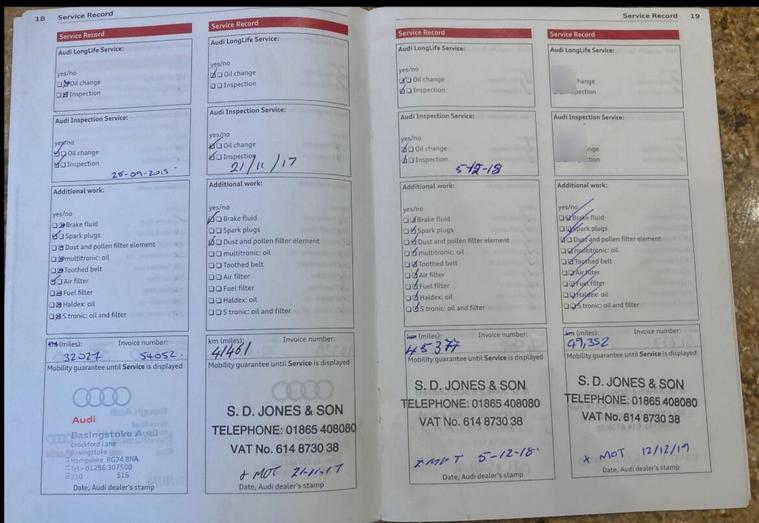 18 Service Record
Service Record
Audi LongLife Service:
yes/no
Oil change
Inspection
Audi Inspection Service:
yes/no
Oil change
Inspection
28-09-2015
Additional work:
yes/no
Brake fluid
Spark plugs
Dust and pollen filter element
multitronic: oil
Toothed belt
Air filter
Fuel filter
Haldex: oil
S tronic: oil and filter
km (miles): Invoice number:
32027 54052
Mobility guarantee until Service is displayed
Audi
Basingstoke Audi
Crockford Lane
Basingstoke
Hampshire RG24 8NA
Tel: 01256 307500
515
Date, Audi dealer's stamp
Service Record
Audi LongLife Service:
yes/no
Oil change
Inspection
Audi Inspection Service:
yes/no
Oil change
Inspection
21/11/17
Additional work:
yes/no
Brake fluid
Spark plugs
Dust and pollen filter element
multitronic: oil
Toothed belt
Air filter
Fuel filter
Haldex: oil
S tronic: oil and filter
km (miles): Invoice number:
41461
Mobility guarantee until Service is displayed
S. D. JONES & SON
TELEPHONE: 01865 408080
VAT No. 614 8730 38
+ MOT 21-11-17
Date, Audi dealer's stamp
Service Record 19
Service Record
Audi LongLife Service:
yes/no
Oil change
Inspection
Audi Inspection Service:
yes/no
Oil change
Inspection
5-12-18
Additional work:
yes/no
Brake fluid
Spark plugs
Dust and pollen filter element
multitronic: oil
Toothed belt
Air filter
Fuel filter
Haldex: oil
S tronic: oil and filter
km (miles): Invoice number:
45377
Mobility guarantee until Service is displayed
S. D. JONES & SON
TELEPHONE: 01865 408080
VAT No. 614 8730 38
+ MOT 5-12-18.
Date, Audi dealer's stamp
Service Record
Audi LongLife Service:
Audi Inspection Service:
Additional work:
yes/no
Brake fluid
Spark plugs
Dust and pollen filter element
multitronic: oil
Toothed belt
Air filter
Fuel filter
Haldex: oil
S tronic: oil and filter
km (miles): Invoice number:
49,352
Mobility guarantee until Service is displayed
S. D. JONES & SON
TELEPHONE: 01865 408080
VAT No. 614 8730 38
+ MOT 12/12/19
Date, Audi dealer's stamp